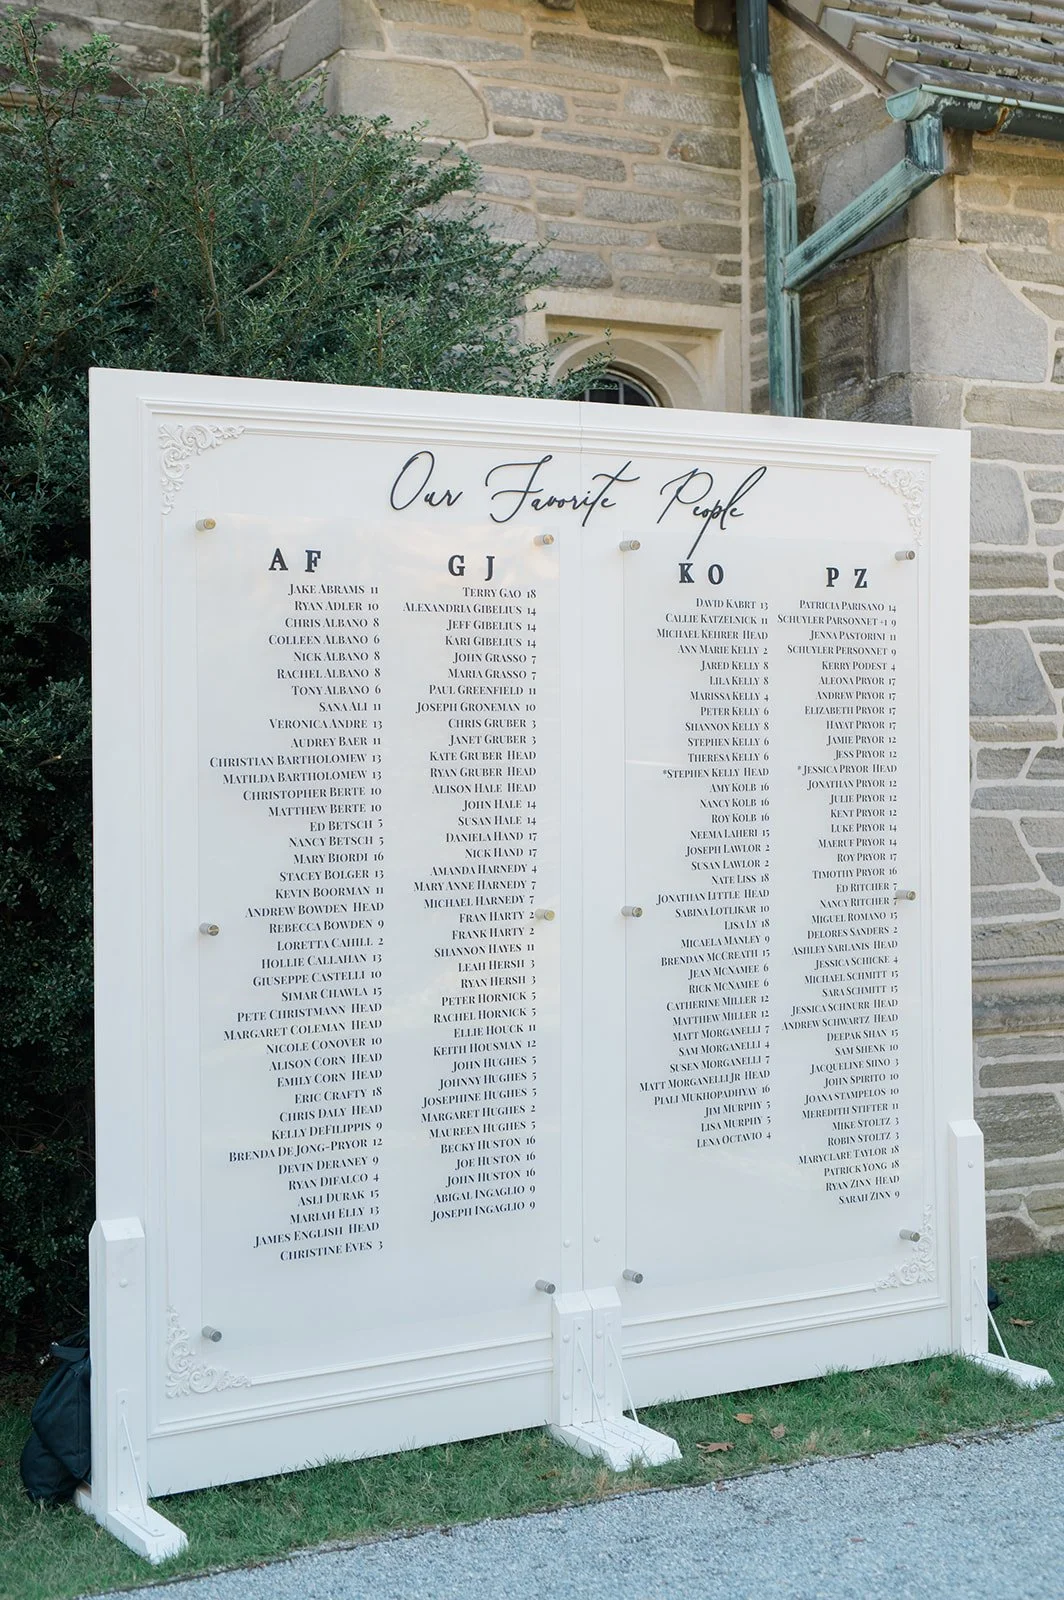 Our Favorite People
A F
JAKE ABRAMS 11
RYAN ADLER 10
CHRIS ALBANO 8
COLLEEN ALBANO 6
NICK ALBANO 8
RACHEL ALBANO 8
TONY ALBANO 6
SANA ALI 11
VERONICA ANDRE 13
AUDREY BAER 11
CHRISTIAN BARTHOLOMEW 13
MATILDA BARTHOLOMEW 13
CHRISTOPHER BERTE 10
MATTHEW BERTE 10
ED BETSCH 5
NANCY BETSCH 5
MARY BIORDI 16
STACEY BOLGER 13
KEVIN BOORMAN 11
ANDREW BOWDEN HEAD
REBECCA BOWDEN 9
LORETTA CAHILL 2
HOLLIE CALLAHAN 13
GIUSEPPE CASTELLI 10
SIMAR CHAWLA 15
PETE CHRISTMANN HEAD
MARGARET COLEMAN HEAD
NICOLE CONOVER 10
ALISON CORN HEAD
EMILY CORN HEAD
ERIC CRAFTY 18
CHRIS DALY HEAD
KELLY DEFILIPPIS 9
BRENDA DE JONG-PRYOR 12
DEVIN DERANEY 9
RYAN DIFALCO 4
ASLI DURAK 15
MARIAH ELLY 13
JAMES ENGLISH HEAD
CHRISTINE EVES 3
G J
TERRY GAO 18
ALEXANDRIA GIBELIUS 14
JEFF GIBELIUS 14
KARI GIBELIUS 14
JOHN GRASSO 7
MARIA GRASSO 7
PAUL GREENFIELD 11
JOSEPH GRONEMAN 10
CHRIS GRUBER 3
JANET GRUBER 3
KATE GRUBER HEAD
RYAN GRUBER HEAD
ALISON HALE HEAD
JOHN HALE 14
SUSAN HALE 14
DANIELA HAND 17
NICK HAND 17
AMANDA HARNEDY 4
MARY ANNE HARNEDY 7
MICHAEL HARNEDY 7
FRAN HARTY 2
FRANK HARTY 2
SHANNON HAYES 11
LEAH HERSH 3
RYAN HERSH 3
PETER HORNICK 5
RACHEL HORNICK 5
ELLIE HOUCK 11
KEITH HOUSMAN 12
JOHN HUGHES 5
JOHNNY HUGHES 5
JOSEPHINE HUGHES 5
MARGARET HUGHES 2
MAUREEN HUGHES 5
BECKY HUSTON 16
JOE HUSTON 16
JOHN HUSTON 16
ABIGAL INGAGLIO 9
JOSEPH INGAGLIO 9
K O
DAVID KABRT 13
CALLIE KATZELNICK 11
MICHAEL KEHRER HEAD
ANN MARIE KELLY 2
JARED KELLY 8
LILA KELLY 8
MARISSA KELLY 4
PETER KELLY 6
SHANNON KELLY 8
STEPHEN KELLY 6
THERESA KELLY 6
*STEPHEN KELLY HEAD
AMY KOLB 16
NANCY KOLB 16
ROY KOLB 16
NEEMA LAHERI 15
JOSEPH LAWLOR 2
SUSAN LAWLOR 2
NATE LISS 18
JONATHAN LITTLE HEAD
SABINA LOTLIKAR 10
LISA LY 18
MICAELA MANLEY 9
BRENDAN MCCREATH 15
JEAN MCNAMEE 6
RICK MCNAMEE 6
CATHERINE MILLER 12
MATTHEW MILLER 12
MATT MORGANELLI 7
SAM MORGANELLI 4
SUSEN MORGANELLI 7
MATT MORGANELLI JR HEAD
PIALI MUKHOPADHYAY 16
JIM MURPHY 5
LISA MURPHY 5
LENA OCTAVIO 4
P Z
PATRICIA PARISANO 14
SCHUYLER PARSONNET +1 9
JENNA PASTORINI 11
SCHUYLER PERSONNET 9
KERRY PODEST 4
ALEONA PRYOR 17
ANDREW PRYOR 17
ELIZABETH PRYOR 17
HAYAT PRYOR 17
JAMIE PRYOR 12
JESS PRYOR 12
*JESSICA PRYOR HEAD
JONATHAN PRYOR 12
JULIE PRYOR 12
KENT PRYOR 12
LUKE PRYOR 14
MAERUF PRYOR 14
ROY PRYOR 17
TIMOTHY PRYOR 16
ED RITCHER 7
NANCY RITCHER 7
MIGUEL ROMANO 15
DELORES SANDERS 2
ASHLEY SARLANIS HEAD
JESSICA SCHICKE 4
MICHAEL SCHMITT 15
SARA SCHMITT 15
JESSICA SCHNURR HEAD
ANDREW SCHWARTZ HEAD
DEEPAK SHAN 15
SAM SHENK 10
JACQUELINE SIINO 3
JOHN SPIRITO 10
JOANA STAMPELOS 10
MEREDITH STIFTER 11
MIKE STOLTZ 3
ROBIN STOLTZ 3
MARYCLARE TAYLOR 18
PATRICK YONG 18
RYAN ZINN HEAD
SARAH ZINN 9